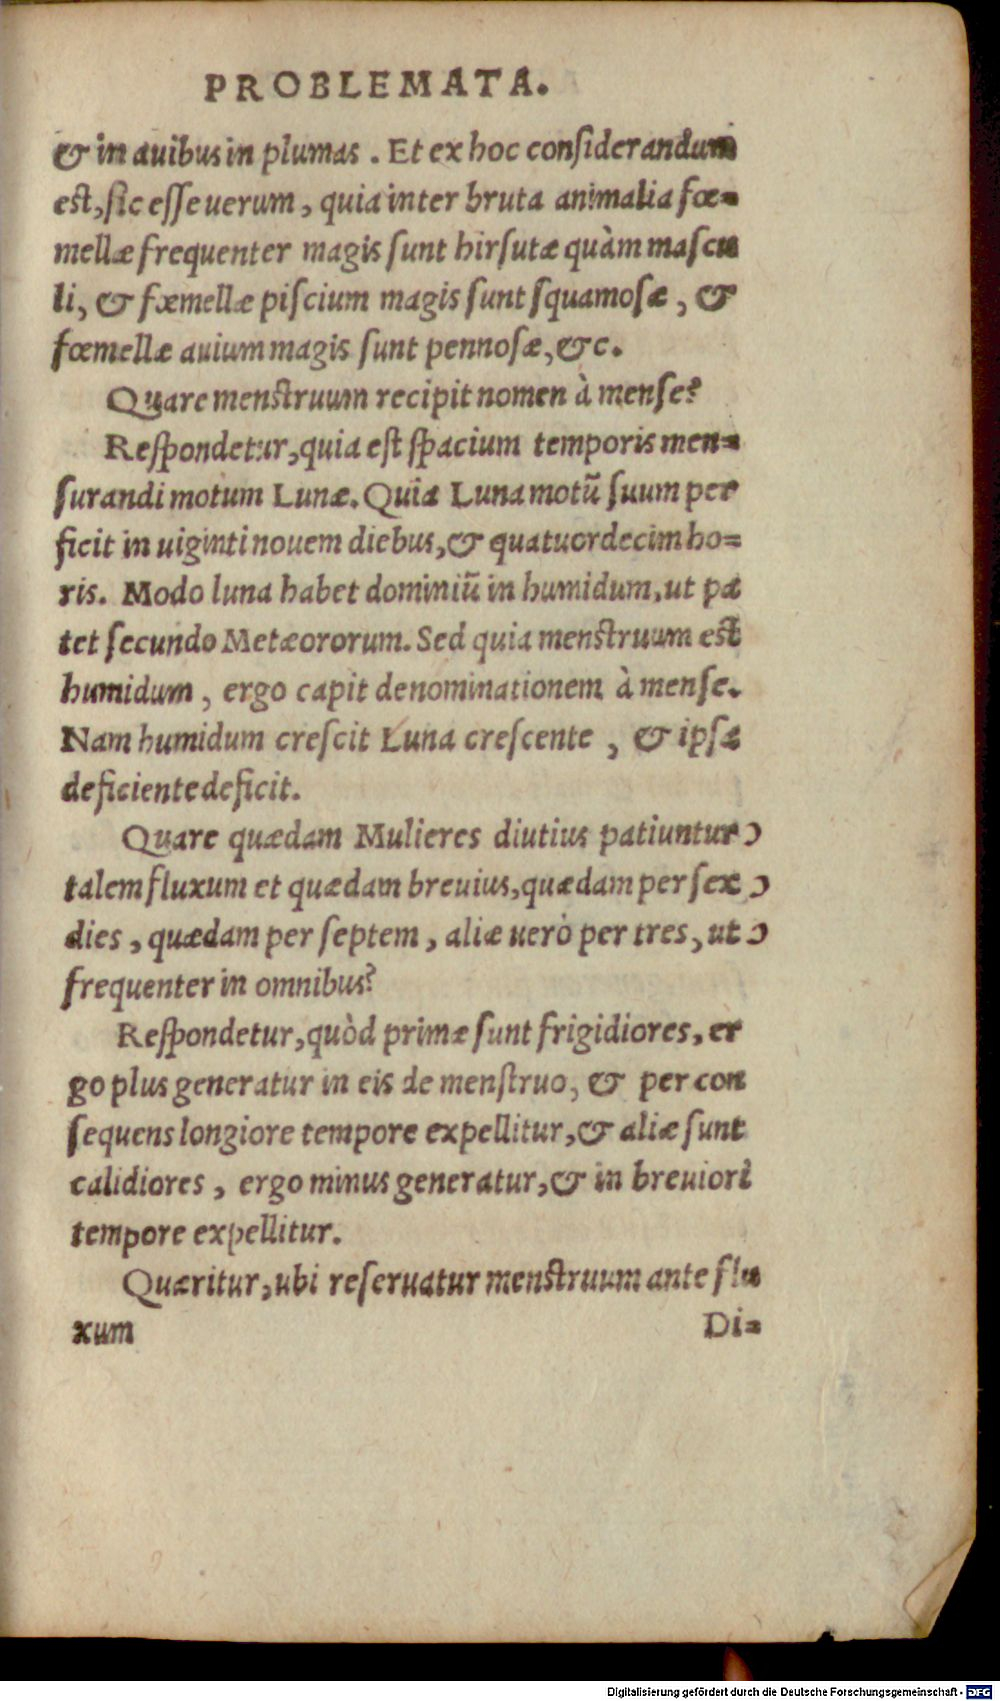 PROBLEMATA.
& in auibus in plumas . Et ex hoc considerandum
est, sic esse uerum, quia inter bruta animalia fœ=
mellæ frequenter magis sunt hirsutæ quàm mascu
li, & fœmellæ piscium magis sunt squamosæ, &
fœmellæ auium magis sunt pennosæ, &c.
Quare menstruum recipit nomen à mense?
Respondetur, quia est spacium temporis men=
surandi motum Lunæ. Quia Luna motū suum per
ficit in uiginti nouem diebus, & quatuordecim ho=
ris. Modo luna habet dominiū in humidum, ut pa
tet secundo Metæororum. Sed quia menstruum est
humidum, ergo capit denominationem à mense.
Nam humidum crescit Luna crescente, & ipsa
deficiente deficit.
Quare quædam Mulieres diutius patiuntur
talem fluxum et quædam breuius, quædam per sex
dies, quædam per septem, aliæ uerò per tres, ut
frequenter in omnibus?
Respondetur, quòd primæ sunt frigidiores, er
go plus generatur in eis de menstruo, & per con
sequens longiore tempore expellitur, & aliæ sunt
calidiores, ergo minus generatur, & in breuiori
tempore expellitur.
Quæritur, ubi reseruatur menstruum ante flu
xum
Di=
Digitalisierung gefördert durch die Deutsche Forschungsgemeinschaft - DFG